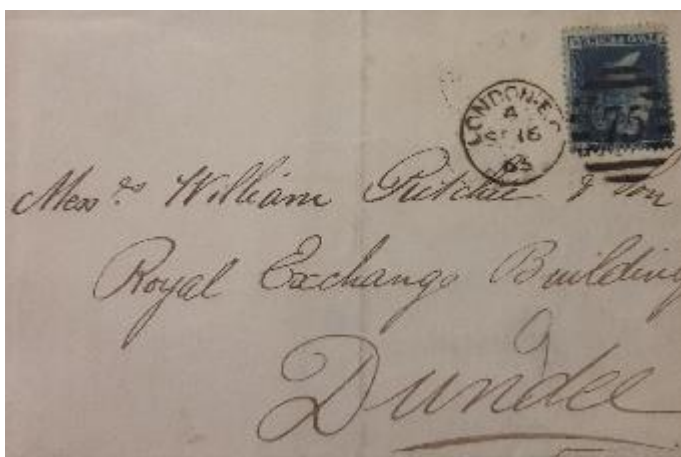 LONDON·E.C
4
16
63
75
Mess.rs William Ritchie & Son
Royal Exchange Building
Dundee